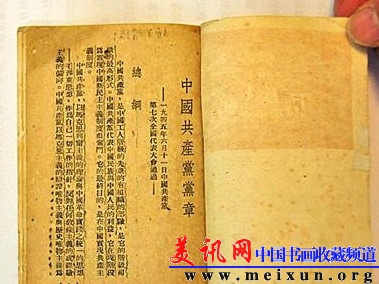 中國共產黨黨章
——一九四五年六月十一日中國共產黨
第七次全國代表大會通過——
總綱
中國共產黨，是中國工人階級的先進的有組織的部隊，是它的階級組
織的最高形式。中國共產黨代表中國民族與中國人民的利益。它在現階段
為實現中國新民主主義制度而奮鬥。它的最終目的，是在中國實現共產主
義制度。
中國共產黨，以馬克思列寧主義的理論與中國革命實踐之統一的思想
——毛澤東思想，作為自己一切工作的指針，反對任何教條主義的或經驗
主義的偏向。中國共產黨以馬克思主義的辯證唯物主義與歷史唯物主義為
美讯网 中国书画收藏频道
www.meixun.org